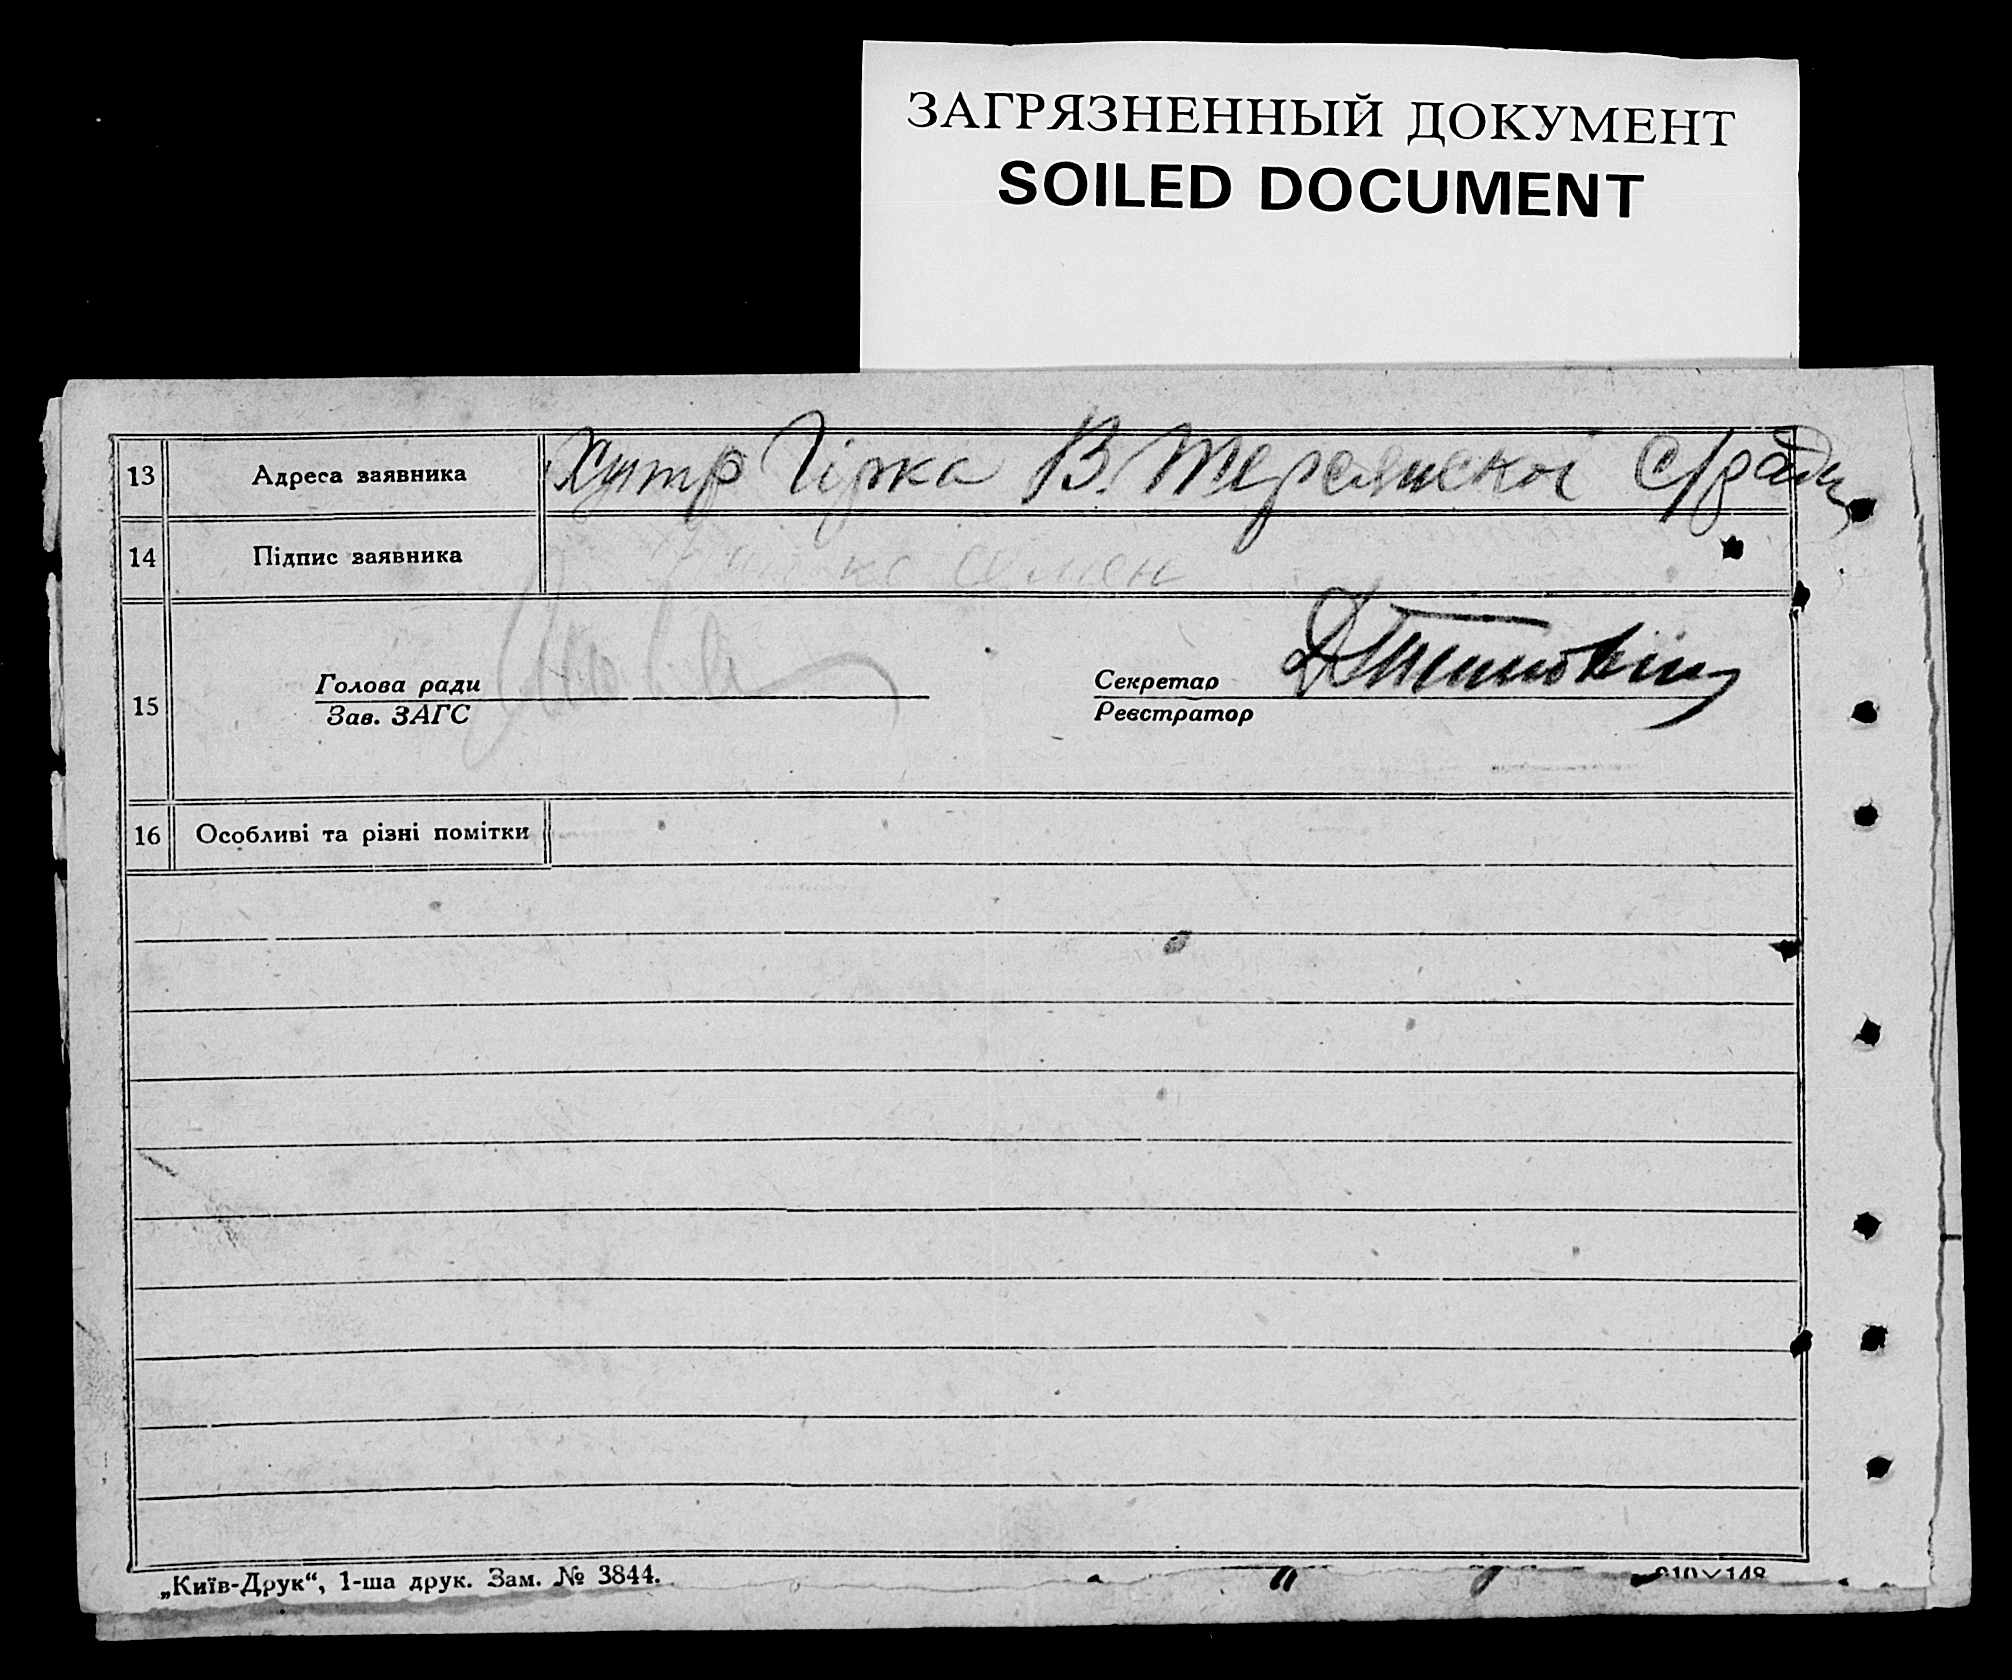 ЗАГРЯЗНЕННЫЙ ДОКУМЕНТ
SOILED DOCUMENT
13 Адреса заявника Хутр Гірка В. Терсянскоі с/ради
14 Підпис заявника семен
15 Голова ради Секретар
Зав. ЗАГС Реєстратор
16 Особливі та різні помітки
„Київ-Друк“, 1-ша друк. Зам. № 3844. 210×148